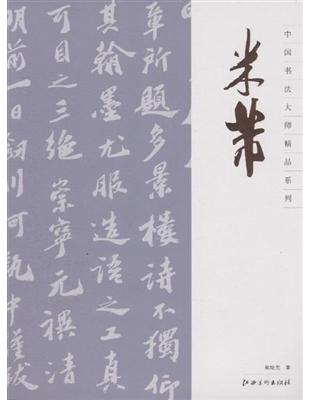 中国书法大师精品系列
米芾
章所題多景樓詩不獨仰
其翰墨尤服造語之工真
可目之三絕崇寧元禩清
明前一日劍川何執中謹跋
著
江西美术出版社